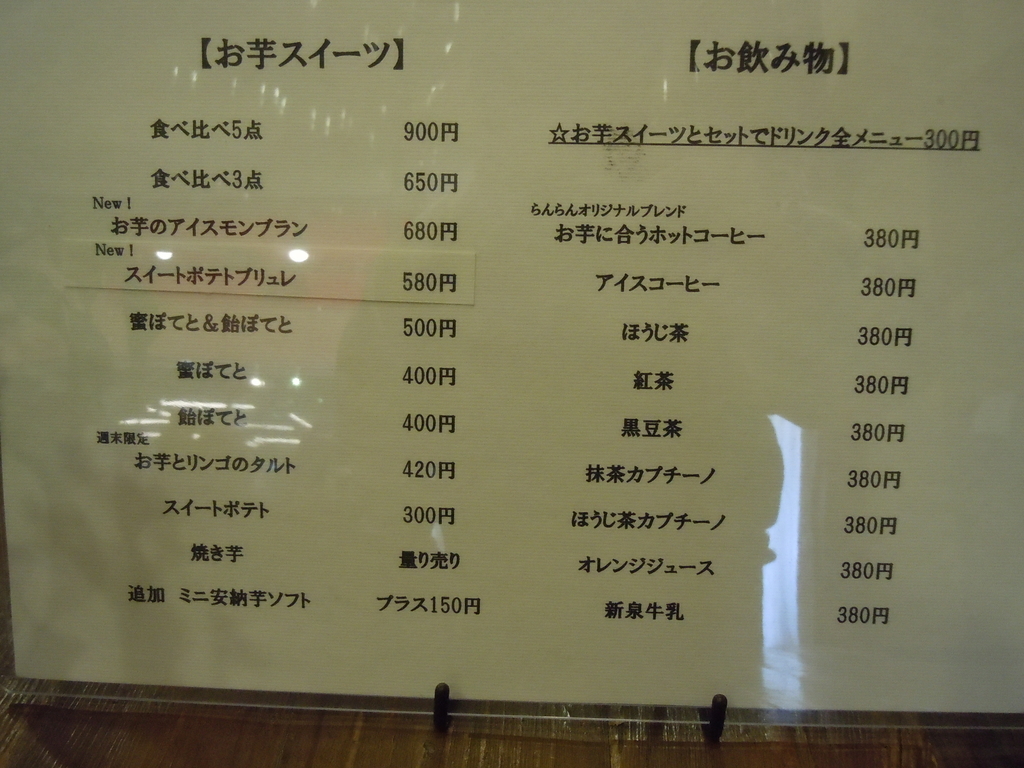 【お芋スイーツ】
食べ比べ5点 900円
食べ比べ3点 650円
New！
お芋のアイスモンブラン 680円
New！
スイートポテトブリュレ 580円
蜜ぽてと＆飴ぽてと 500円
蜜ぽてと 400円
飴ぽてと 400円
週末限定
お芋とリンゴのタルト 420円
スイートポテト 300円
焼き芋 量り売り
追加 ミニ安納芋ソフト プラス150円
【お飲み物】
☆お芋スイーツとセットでドリンク全メニュー300円
らんらんオリジナルブレンド
お芋に合うホットコーヒー 380円
アイスコーヒー 380円
ほうじ茶 380円
紅茶 380円
黒豆茶 380円
抹茶カプチーノ 380円
ほうじ茶カプチーノ 380円
オレンジジュース 380円
新泉牛乳 380円